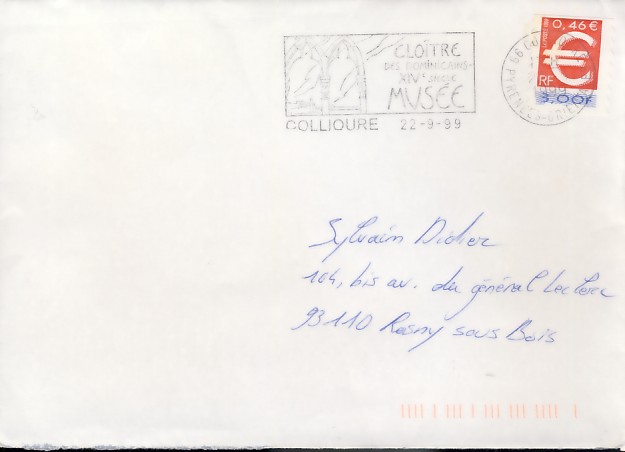 CLOÎTRE
DES DOMINICAINS-
XIVe SIECLE
MUSÉE
COLLIOURE 22-9-99
0,46 €
RF
3,00F
66
PYRENEES-ORIE
Sylvain Didier
104, bis av. du général Leclerc
93110 Rosny sous Bois